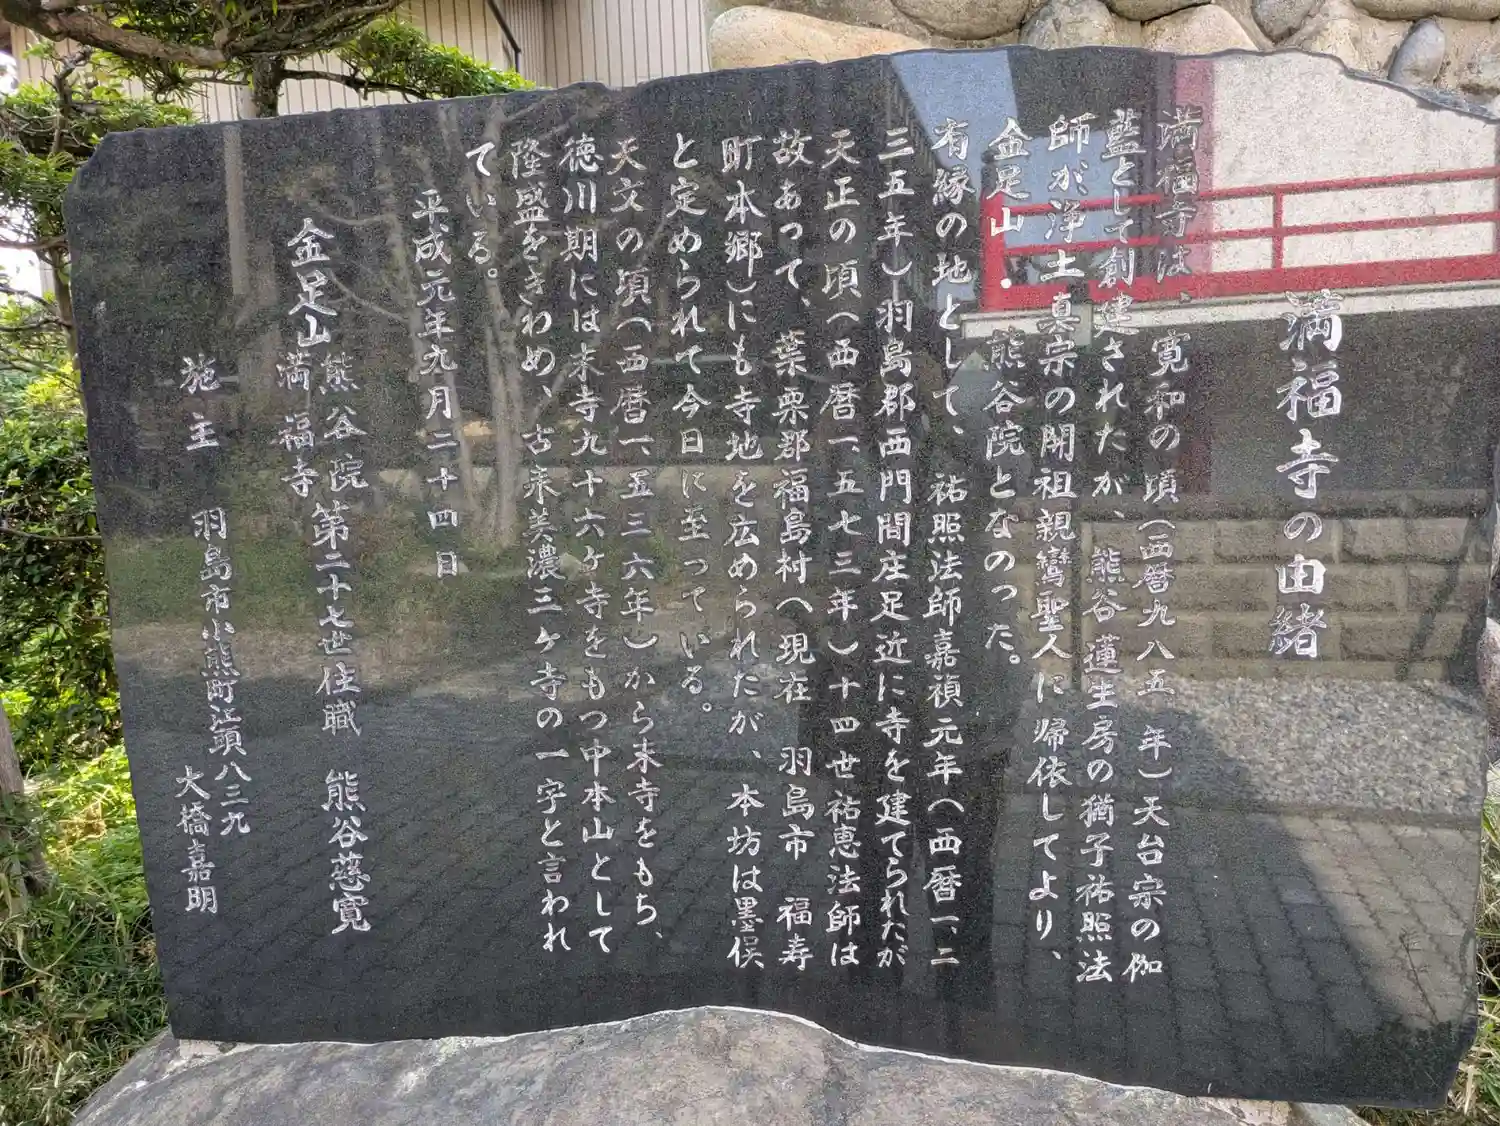 満福寺の由緒
満福寺は、寛和の頃(西暦九八五年)天台宗の伽
藍として創建されたが、熊谷蓮生房の猶子祐照法
師が浄土真宗の開祖親鸞聖人に帰依してより、
金足山・熊谷院となのった。
有縁の地として、祐照法師嘉禎元年(西暦一、二
三五年)羽島郡西門間庄足近に寺を建てられたが
天正の頃(西暦一、五七三年)十四世祐恵法師は
故あって、葉栗郡福島村(現在 羽島市 福寿
町本郷)にも寺地を広められたが、本坊は墨俣
と定められて今日に至っている。
天文の頃(西暦一、五三六年)から末寺をもち、
徳川期には末寺九十六ケ寺をもつ中本山として
隆盛をきわめ、古来美濃三ヶ寺の一字と言われ
ている。
平成元年九月二十四日
金足山 熊谷院 第二十七世住職 熊谷慈寛
満福寺
施主 羽島市小熊町江頭八三九
大橋嘉明